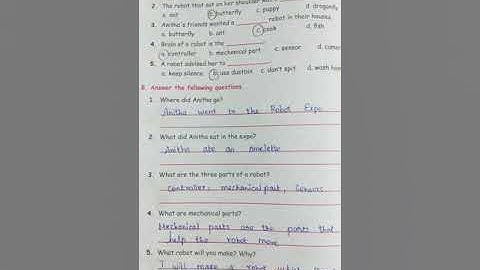 2. The robot that sat on her shoulder was a
a. ant b. butterfly c. puppy d. dragonfly
3. Anitha's friends wanted a robot in their houses.
a. butterfly b. ant c. cook d. fish
4. Brain of a robot is the
a. controller b. mechanical part c. sensor d. camera
5. A robot advised her to
a. keep silence b. use dustbin c. don't spit d. wash hands
B. Answer the following questions
1. Where did Anitha go?
Anitha went to the Robot Expo
2. What did Anitha eat in the expo?
Anitha ate an omelette
3. What are the three parts of a robot?
Controller, mechanical part, Sensors
4. What are mechanical parts?
Mechanical parts are the parts that
help the robot move
5. What robot will you make? Why?
I will make a robot